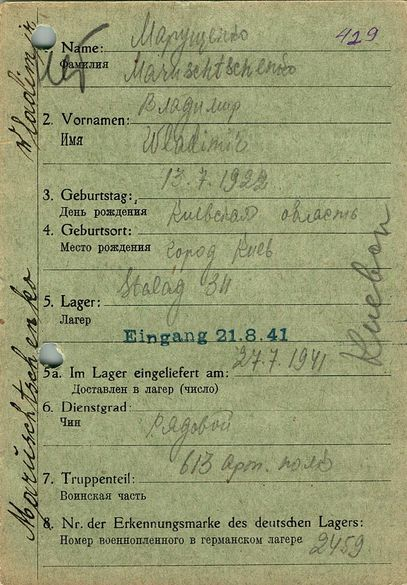 429
Марущенко
1. Name:
Фамилия
Maruschtschenko
Владимир
2. Vornamen:
Имя
Wladimir
13.7.1922
3. Geburtstag:
День рождения
Киевская область
4. Geburtsort:
Место рождения
город Киев
Stalag 34
5. Lager:
Лагерь
Eingang 21.8.41
27.7.1941
5a. Im Lager eingeliefert am:
Доставлен в лагер (число)
6. Dienstgrad:
Чин
Рядовой
613 арт. полк
7. Truppenteil:
Воинская часть
8. Nr. der Erkennungsmarke des deutschen Lagers:
Номер военнопленного в германском лагере
2459
Maruschtschenko Wladimir